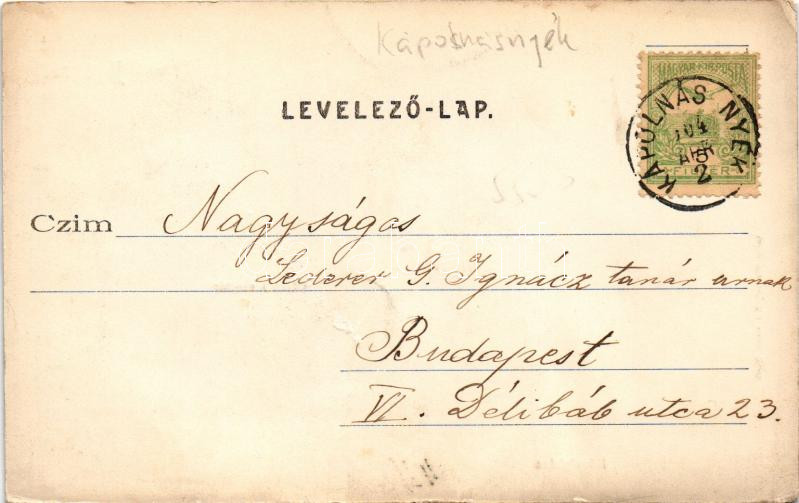 Kápolnásnyék
LEVELEZŐ-LAP.
MAGYAR KIR. POSTA
FILLÉR
KÁPOLNÁS NYÉK
904
ÁPR
2
Czim Nagyságos
Lederer G. Ignácz tanár urnak
Budapest
VI. Délibáb utca 23.